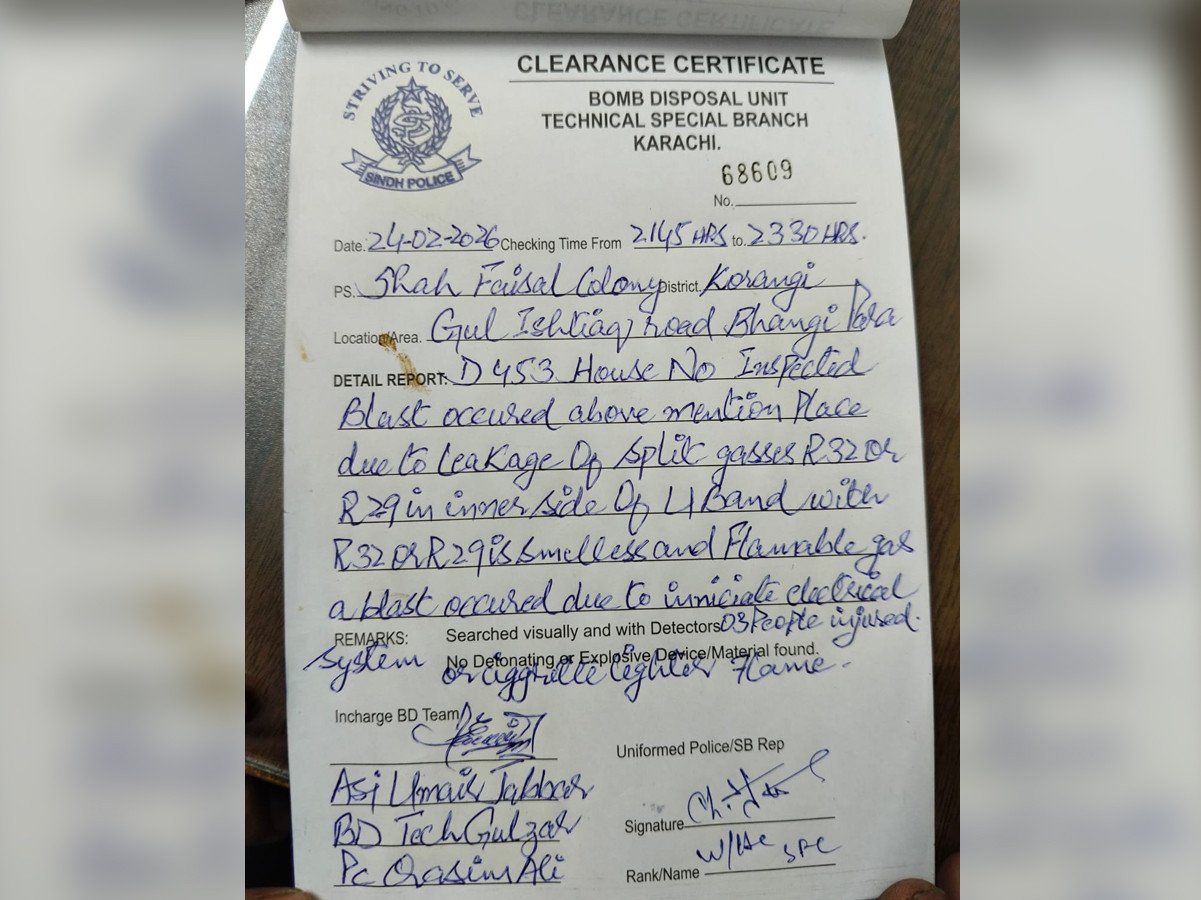 CLEARANCE CERTIFICATE
STRIVING TO SERVE
SINDH POLICE
CLEARANCE CERTIFICATE
BOMB DISPOSAL UNIT
TECHNICAL SPECIAL BRANCH
KARACHI.
68609
No.
Date. 24-02-2026 Checking Time From 2145 HRS to. 2330 HRS.
PS. Shah Faisal Colony District. Korangi
Location/Area. Gul Ishtiaq road Bhangi Para
DETAIL REPORT: D 453 House No Inspected
Blast occured above mention Place
due to Leakage Of split gasses R32 or
R29 in inner side Of Band with
R32 or R29 is smelless and Flamable gas
a blast occured due to inniciate electrical
REMARKS: Searched visually and with Detectors 03 People injused.
system No Detonating or Explosive Device/Material found.
or lighter Flame.
Incharge BD Team
Uniformed Police/SB Rep
Asi Umair Jabbar
BD Tech Gulzar
Signature
Pc Qasim Ali
Rank/Name W/HC